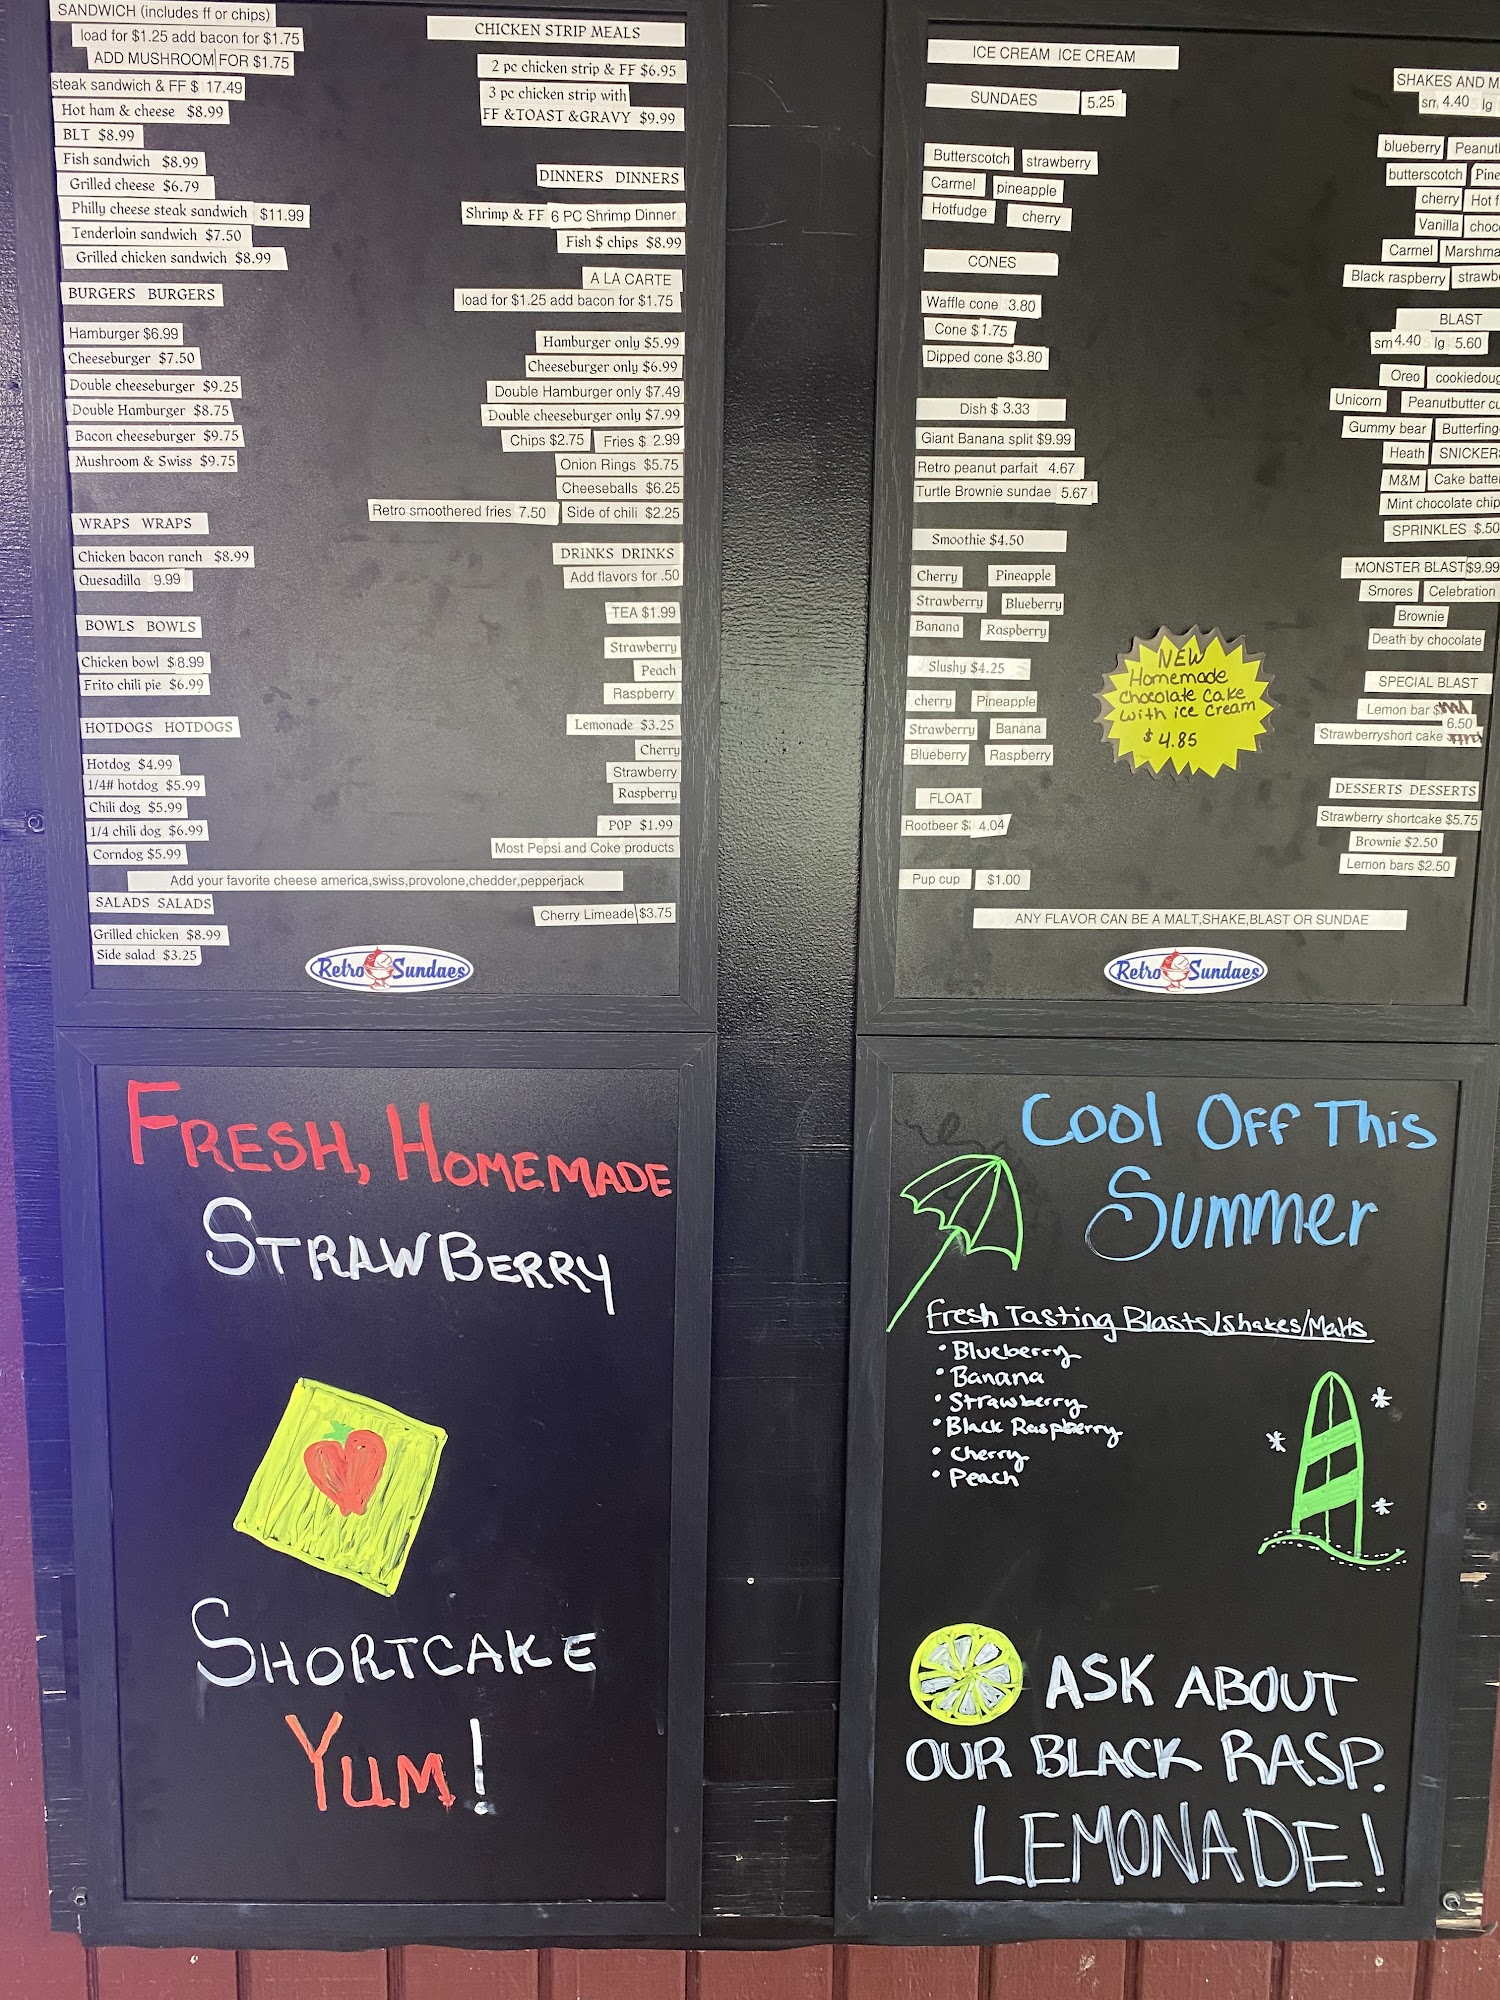 SANDWICH (includes ff or chips)
load for $1.25 add bacon for $1.75
ADD MUSHROOM FOR $1.75
steak sandwich & FF $ 17.49
Hot ham & cheese $8.99
BLT $8.99
Fish sandwich $8.99
Grilled cheese $6.79
Philly cheese steak sandwich $11.99
Tenderloin sandwich $7.50
Grilled chicken sandwich $8.99
BURGERS BURGERS
Hamburger $6.99
Cheeseburger $7.50
Double cheeseburger $9.25
Double Hamburger $8.75
Bacon cheeseburger $9.75
Mushroom & Swiss $9.75
WRAPS WRAPS
Chicken bacon ranch $8.99
Quesadilla 9.99
BOWLS BOWLS
Chicken bowl $8.99
Frito chili pie $6.99
HOTDOGS HOTDOGS
Hotdog $4.99
1/4# hotdog $5.99
Chili dog $5.99
1/4 chili dog $6.99
Corndog $5.99
CHICKEN STRIP MEALS
2 pc chicken strip & FF $6.95
3 pc chicken strip with
FF &TOAST &GRAVY $9.99
DINNERS DINNERS
Shrimp & FF 6 PC Shrimp Dinner
Fish $ chips $8.99
A LA CARTE
load for $1.25 add bacon for $1.75
Hamburger only $5.99
Cheeseburger only $6.99
Double Hamburger only $7.49
Double cheeseburger only $7.99
Chips $2.75 Fries $ 2.99
Onion Rings $5.75
Cheeseballs $6.25
Retro smoothered fries 7.50 Side of chili $2.25
DRINKS DRINKS
Add flavors for .50
TEA $1.99
Strawberry
Peach
Raspberry
Lemonade $3.25
Cherry
Strawberry
Raspberry
POP $1.99
Most Pepsi and Coke products
Add your favorite cheese america,swiss,provolone,chedder,pepperjack
SALADS SALADS
Grilled chicken $8.99
Side salad $3.25
Cherry Limeade $3.75
Retro Sundaes
ICE CREAM ICE CREAM
SUNDAES 5.25
Butterscotch strawberry
Carmel pineapple
Hotfudge cherry
CONES
Waffle cone 3.80
Cone $1.75
Dipped cone $3.80
Dish $ 3.33
Giant Banana split $9.99
Retro peanut parfait 4.67
Turtle Brownie sundae 5.67
Smoothie $4.50
Cherry Pineapple
Strawberry Blueberry
Banana Raspberry
Slushy $4.25
cherry Pineapple
Strawberry Banana
Blueberry Raspberry
FLOAT
Rootbeer $ 4.04
Pup cup $1.00
NEW
Homemade
Chocolate Cake
with ice cream
$ 4.85
SHAKES AND M
sm 4.40 lg
blueberry Peanut
butterscotch Pine
cherry Hot f
Vanilla choc
Carmel Marshma
Black raspberry strawb
BLAST
sm 4.40 lg 5.60
Oreo cookiedoug
Unicorn Peanutbutter cu
Gummy bear Butterfing
Heath SNICKERS
M&M Cake batte
Mint chocolate chip
SPRINKLES $.50
MONSTER BLAST $9.99
Smores Celebration
Brownie
Death by chocolate
SPECIAL BLAST
Lemon bar $
6.50
Strawberryshort cake
DESSERTS DESSERTS
Strawberry shortcake $5.75
Brownie $2.50
Lemon bars $2.50
ANY FLAVOR CAN BE A MALT,SHAKE,BLAST OR SUNDAE
Retro Sundaes
FRESH, HOMEMADE
STRAWBERRY
SHORTCAKE
YUM!
Cool Off This
Summer
Fresh Tasting Blasts/Shakes/Malts
• Blueberry
• Banana
• Strawberry
• Black Raspberry
• Cherry
• Peach
ASK ABOUT
OUR BLACK RASP.
LEMONADE!